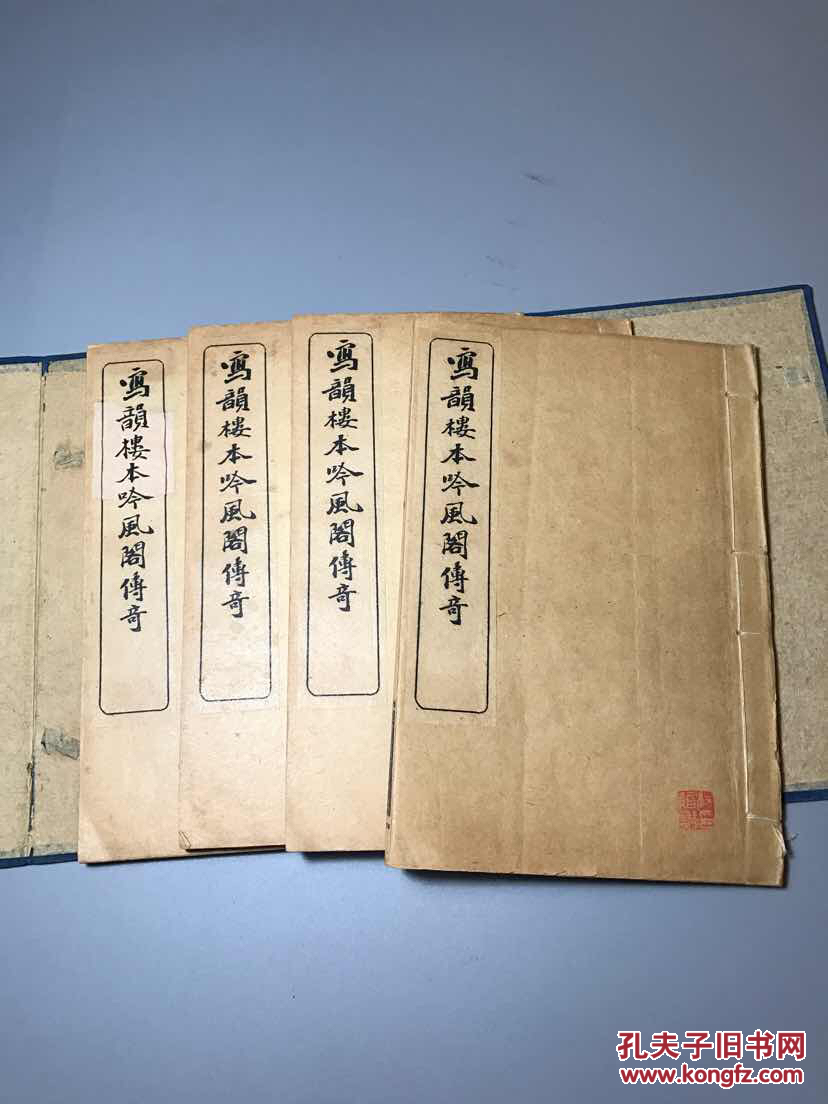 寫韻樓本吟風閣傳奇
寫韻樓本吟風閣傳奇
寫韻樓本吟風閣傳奇
寫韻樓本吟風閣傳奇
孔夫子旧书网
www.kongfz.com